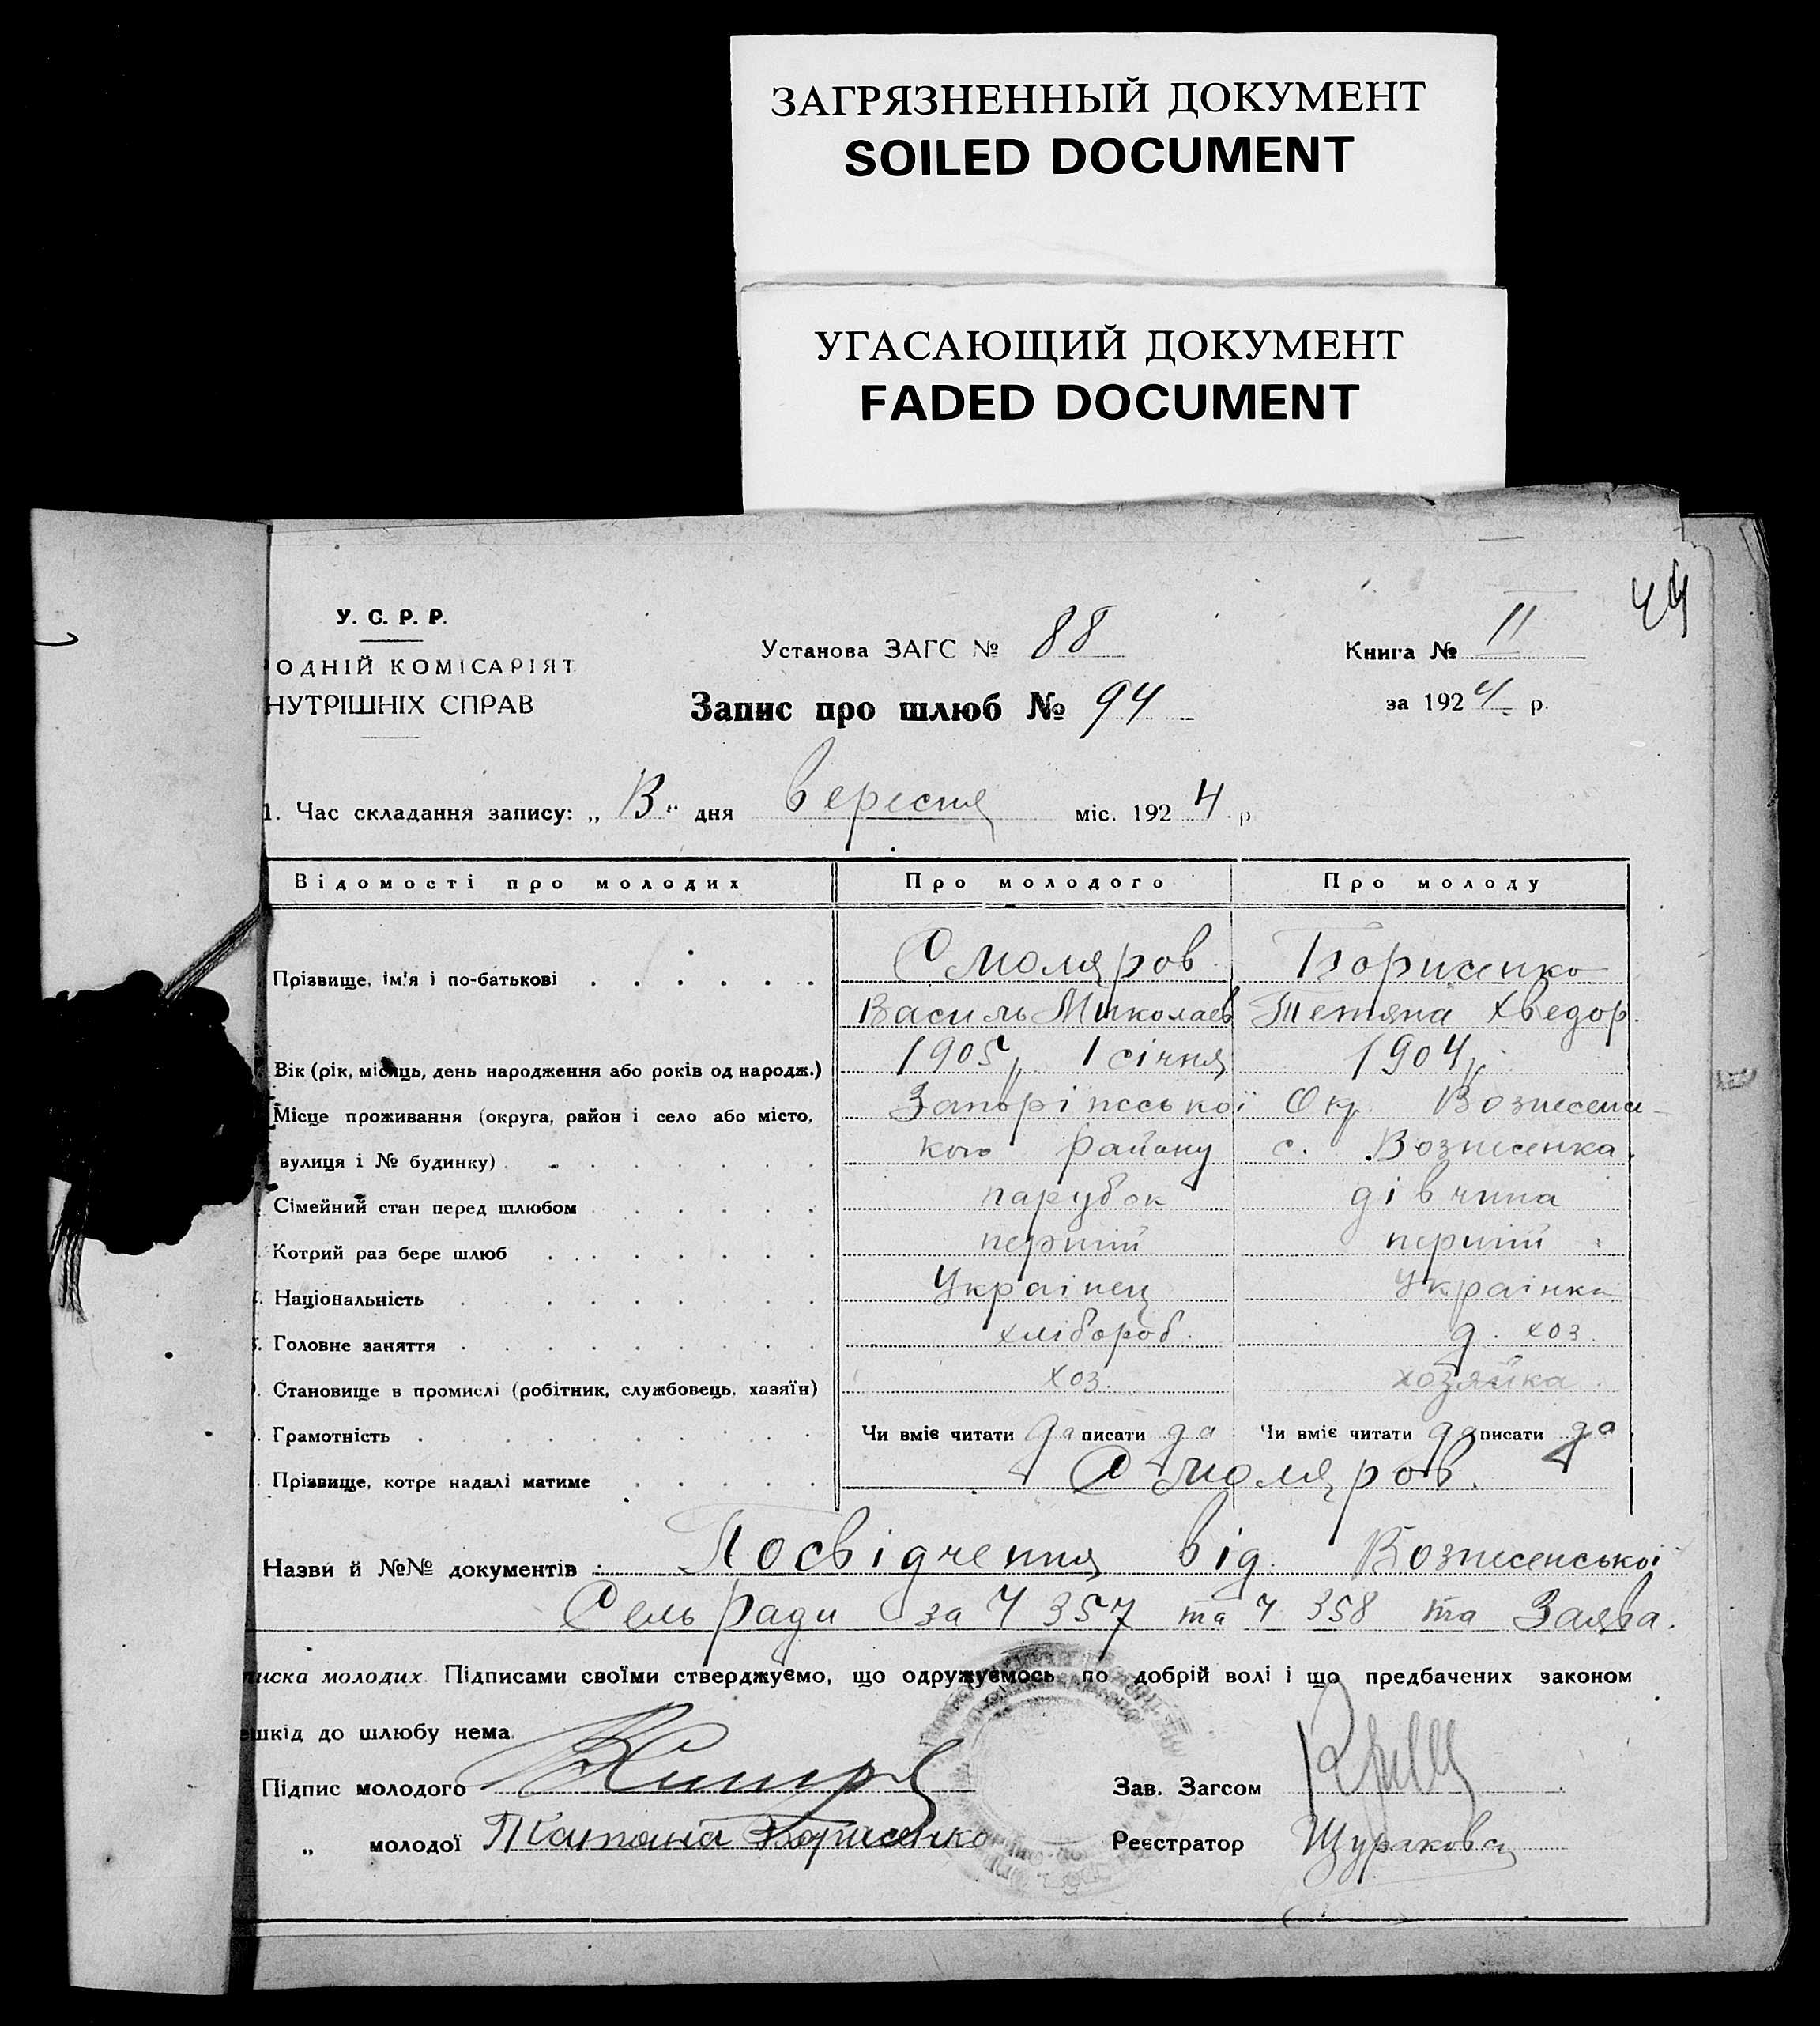 ЗАГРЯЗНЕННЫЙ ДОКУМЕНТ
SOILED DOCUMENT
УГАСАЮЩИЙ ДОКУМЕНТ
FADED DOCUMENT
44
У. С. Р. Р.
ОДНІЙ КОМІСАРІЯТ
НУТРІШНІХ СПРАВ
Установа ЗАГС № 88
Книга № II
Запис про шлюб № 94
за 1924 р.
1. Час складання запису: „ " дня вересня міс. 1924 р
Відомості про молодих Про молодого Про молоду
Прізвище, ім'я і по-батькові Смоляров Борисенко
Василь Миколаєв Тетяна Хведор.
Вік (рік, місяць, день народження або років од народж.) 1905 р. 1 січня 1904 р.
Місце проживання (округа, район і село або місто, Запоріжської Окр. Вознесенс-
вулиця і № будинку) кого району с. Вознесенка.
Сімейний стан перед шлюбом парубок дівчина
Котрий раз бере шлюб перший перший
Національність Украінец Украінка
Головне заняття хлібороб. д. хоз.
Становище в промислі (робітник, службовець, хазяїн) хоз. хозяйка.
Грамотність Чи вміє читати да писати да Чи вміє читати да писати да
Прізвище, котре надалі матиме Смоляров.
Назви й №№ документів: Посвідчення від Вознесенської
Сельради за Ч 357 та Ч 358 та Заява.
писка молодих. Підписами своїми стверджуємо, що одружуємось по добрій волі і що предбачених законом
ешкід до шлюбу нема.
Підпис молодого Зав. Загсом
„ молодої Татяна Борисенко Реєстратор Щуракова